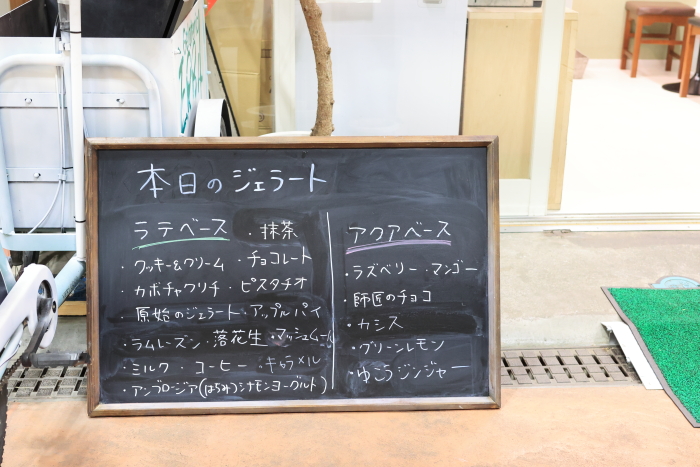 本日のジェラート
ラテベース ・抹茶
・クッキー&クリーム ・チョコレート
・カボチャクリチ ・ピスタチオ
・原始のジェラート ・アップルパイ
・ラムレーズン ・落花生 ・マッシュルーム
・ミルク ・コーヒー ・キャラメル
・アンブロージア(はちみつシナモンヨーグルト)
アクアベース
・ラズベリー ・マンゴー
・師匠のチョコ
・カシス
・グリーンレモン
・ゆこうジンジャー